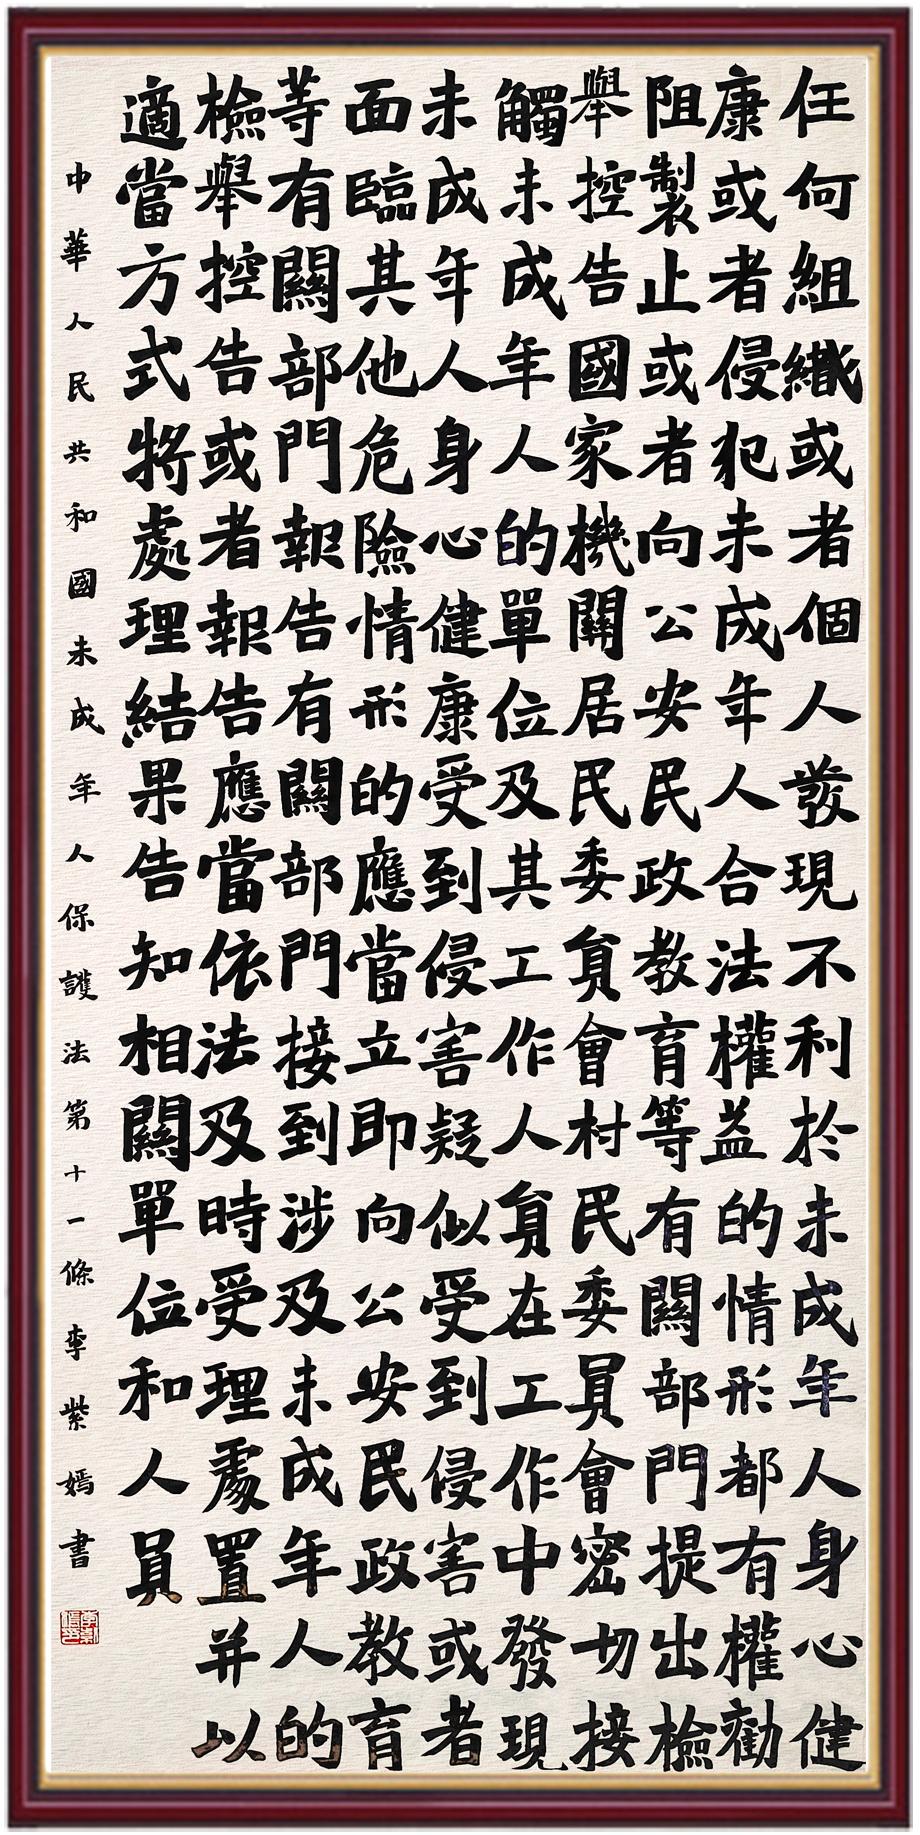 任何組織或者個人發現不利於未成年人身心健
康或者侵犯未成年人合法權益的情形都有權勸
阻製止或者向公安民政教育等有關部門提出檢
舉控告國家機關居民委員會村民委員會密切接
觸未成年人的單位及其工作人員在工作中發現
未成年人身心健康受到侵害疑似受到侵害或者
面臨其他危險情形的應當立即向公安民政教育
等有關部門報告有關部門接到涉及未成年人的
檢舉控告或者報告應當依法及時受理處置并以
適當方式將處理結果告知相關單位和人員
中華人民共和國未成年人保護法第十一條李紫嫣書